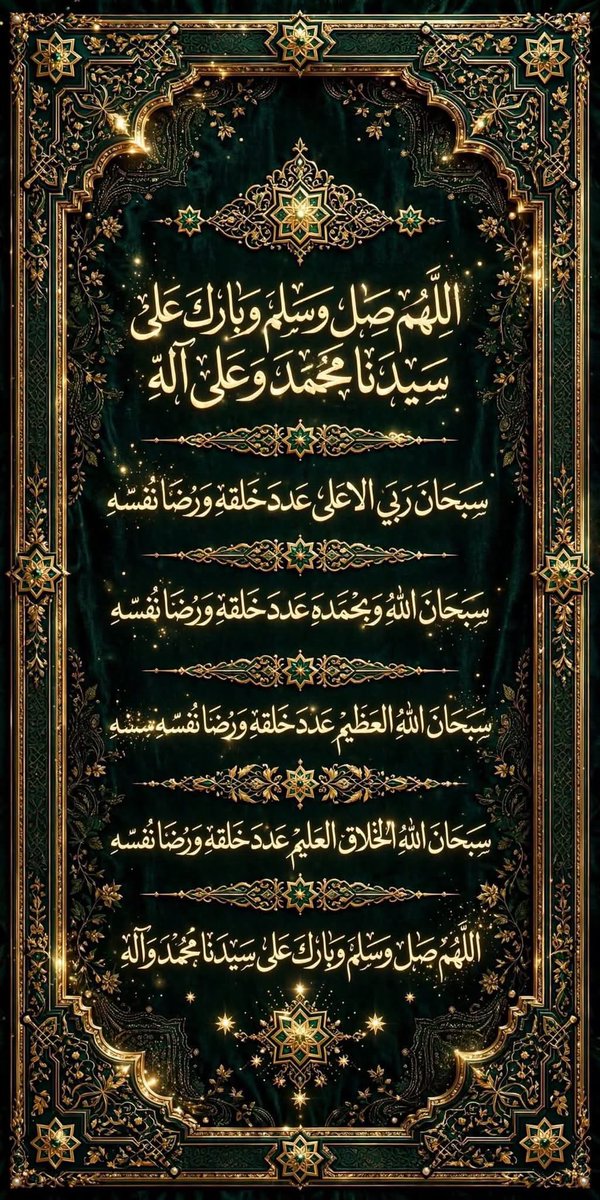 اللَّهُم صَل وَسَلم وَبَارك عَلى
سَيدنَا مُحمّد وَعَلى آلهّ
سبحَانَ رَبي الاعَلى عَددَ خَلقه وَرُضَا نُفسّه
سبحَانَ اللهُ وَبحْمَده عَددَ خَلقه وَرُضَا نُفسّه
سبحَانَ اللهُ العَظيمْ عَددَ خَلقه وَرُضَا نُفسّه سننه
سبحَانَ اللهُ الخَلاق العَليمْ عَددَ خَلقه وَرُضَا نُفسّه
اللَّهُم صَل وَسَلمْ وَبَاركَ عَلى سَيدَنَا مُحمَد وَآله